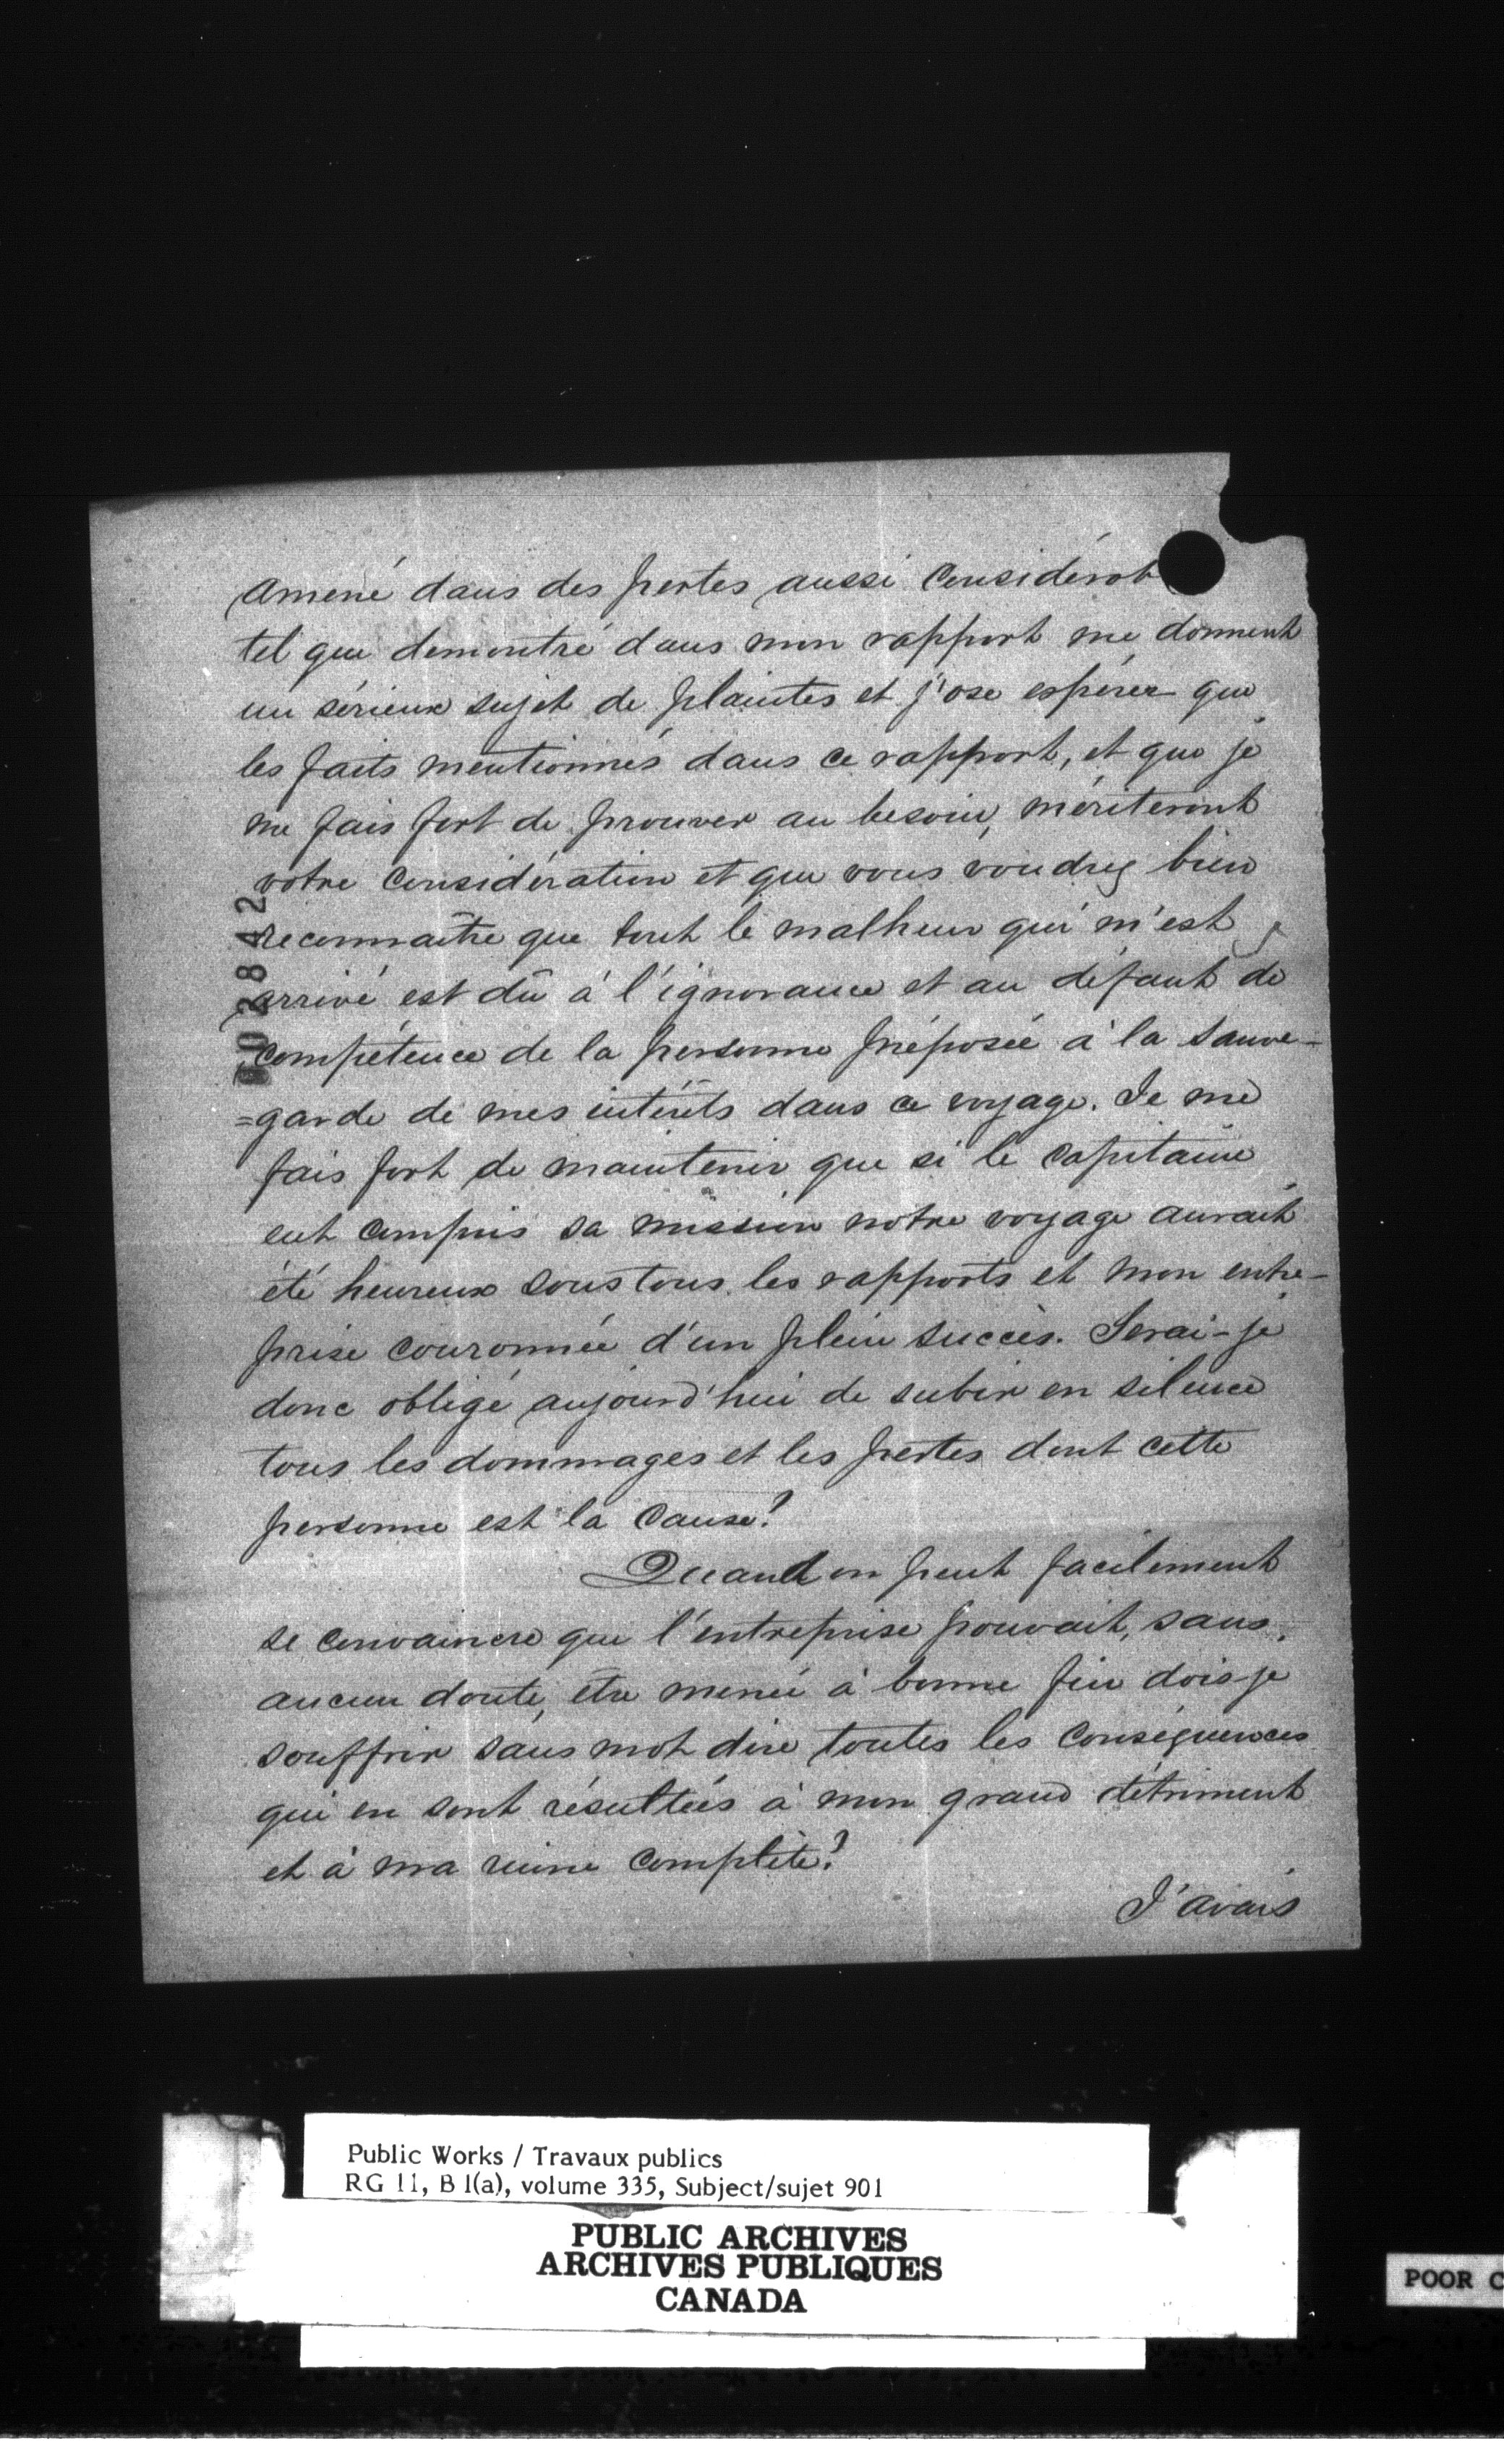 amené dans des pertes aussi considérab
tel que demontré dans mon rapport me donnent
un sérieux sujet de plaintes et j'ose espérer que
les faits mentionnés dans ce rapport, et que je
me fais fort de prouver au besoin, mériteront
votre considération et que vous voudrez bien
reconnaître que tout le malheur qui m'est
arrivé est dû à l'ignorance et au défaut de
compétence de la personne préposée à la sauve-
=garde de mes intérêts dans ce voyage. Je me
fais fort de maintenir que si le capitaine
eut compris sa mission notre voyage aurait
été heureux sous tous les rapports et mon entre-
prise couronnée d'un plein succès. Serai-je
donc obligé aujourd'hui de subir en silence
tous les dommages et les pertes dont cette
personne est la cause?
Quand on peut facilement
se convaincre que l'entreprise pouvait, sans
aucun doute, être menée à bonne fin dois-je
souffrir sans mot dire toutes les conséquences
qui en sont résultées à mon grand détriment
et à ma ruine complète?
J'avais
Public Works / Travaux publics
RG 11, B 1(a), volume 335, Subject/sujet 901
PUBLIC ARCHIVES
ARCHIVES PUBLIQUES
CANADA
POOR C